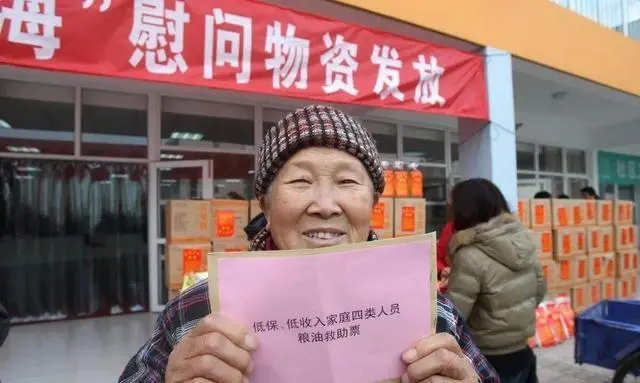 海”慰问物资发放
低保、低收入家庭四类人员
粮油救助票